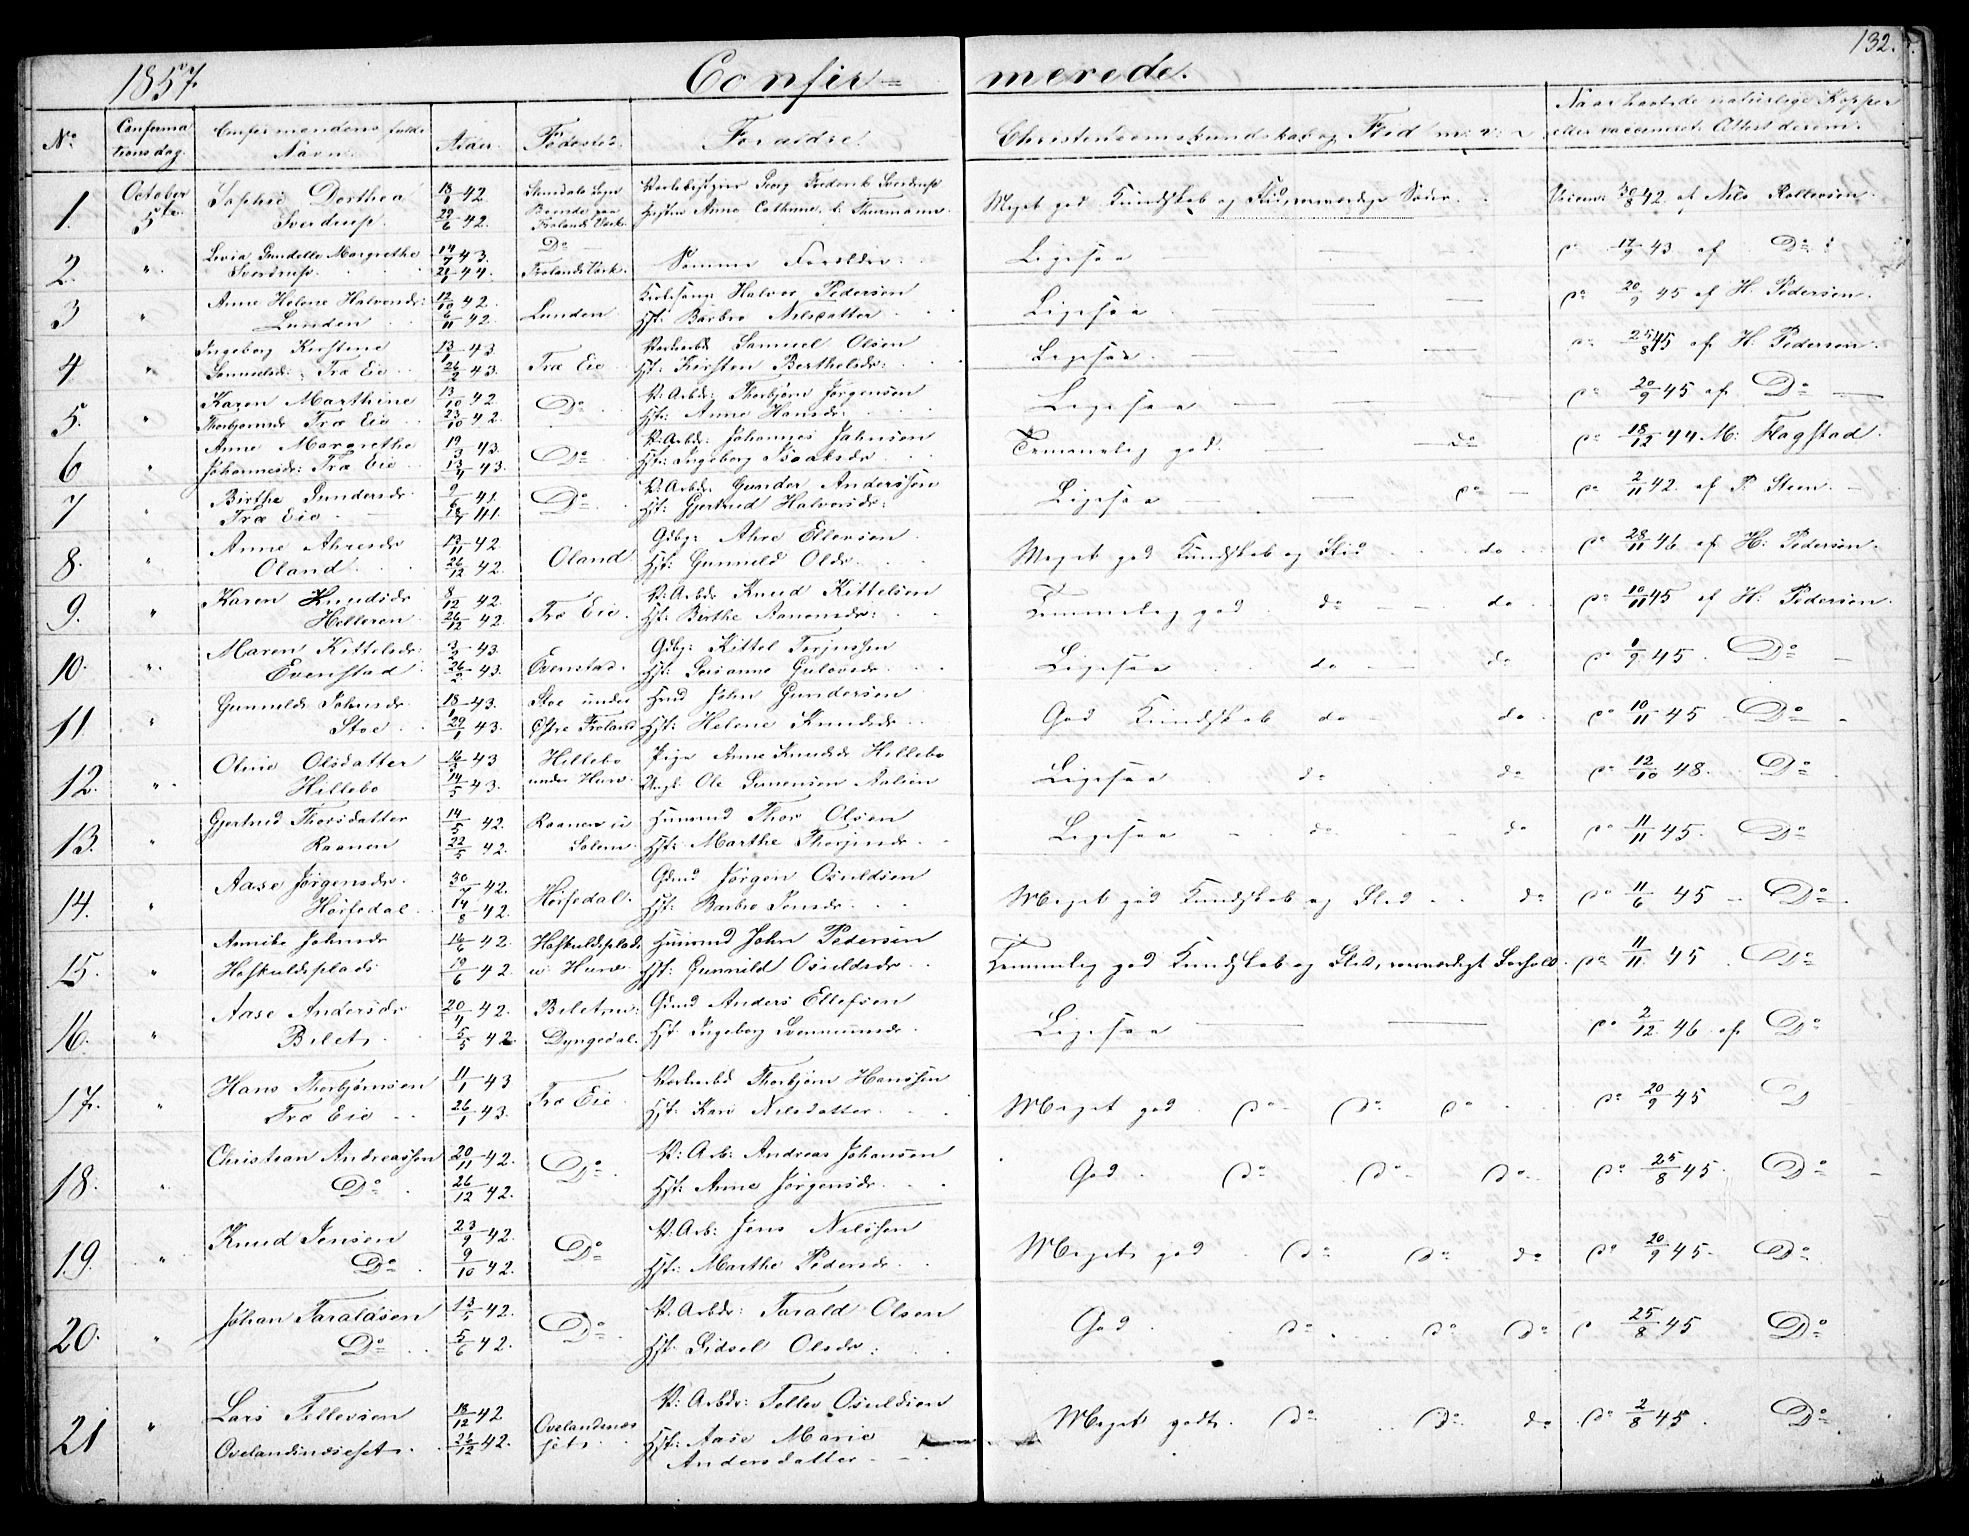 132.
1857. Confirmerede.
No. Confirmationsdag. Confirmandens fulde Navn. Alder. Fødested. Forældre. Christendomskundskab og Flid m: v: Naar havt de naturlige Kopper eller vaccineret. Attest derom.
1. October 5te Sophie Dorthea Sverdrup. 18/1 42. 29/6 42. Værksbestyrer Georg Frederik Sverdrup Hustru Anne Cathrine f. Thurmann. Meget god Kundskab og Flid, Vaccin: 30/8 42 af Nils Rollevsen.
2. " Lovia Gundelle Margrethe Sverdrup. 14/7 43. 21/1 44. Do Frolands Værk. Samme Forældre. Ligesaa do 17/9 43 af Do
3 " Anne Helene Halvorsdr: Lunden 12/10 42. 6/11 42. Lunden. Kirkesang: Halvor Pedersen Hst: Barbro Nilsdatter Ligesaa do 20/9 45 af H. Pedersen.
4. " Ingeborg Kirstine Samuelsdr: Træ Eie 13/1 43. 26/2 43. Træ Eie Værksarbdr Samuel Olsen Hst: Kirsten Berthelsdr: Ligesaa do 25/8 45 af H. Pedersen.
5. " Karen Marthine Thorbjørnsdr Træ Eie 13/10 42. 23/10 42. Do V: Arbdr: Thorbjørn Jørgensen Hst: Anne Hansdr: Ligesaa do 20/9 45 af Do
6 " Anne Margrethe Johannesdr: Træ Eie 19/3 43. 13/4 43. Do V: Arbdr: Johannes Jahnsen Hst: Ingeborg Isaaksdr Temmelig god. do do 18/12 44 M: Flagstad.
7 " Birthe Gundersdr Træ Eie 9/6 41. 18/7 41. Do V: Arbdr Gunder Anderssen Hst: Gjertrud Halvorsdr: Ligesaa do do 2/11 42. af P. Steen.
8. " Anne Ahresdr Oland. 13/11 42. 26/12 42. Oland Gdbgr Ahre Ellevsen Hst: Gunnild Olsdr. Meget god Kundskab og Flid do do 28/11 46 af H: Pedersen.
9. " Karen Knudsdr Helleren 8/12 42. 26/12 42. Træ Eie. V: Arbdr Knud Kittelsen Hst: Birthe Aanonsdr: Temmelig god do do do 10/11 45 af H: Pedersen.
10. " Maren Kittelsdr: Evenstad 2/2 43. 26/2 43. Evenstad. Gdbgr: Kittel Terjussen Hst: Ligesaa do do do 1/9 45. Do
11. " Gunnild Johnsdr Stoe 18/1 43. 29/1 43. Stoe under Østre Froland Hmd John Gundersen Hst: Helene Knudsdr God Kundskab do do do 10/11 45 Do
12. " Oline Olsdatter Hillebo 16/3 43 14/5 43. Hillebo under Hurv. Pige Anne Knudsdr Hillebo Ungk: Ole Ligesaa do do do 12/10 48. Do
13. " Gjertrud Thorsdatter Raanen 14/5 42. 22/5 42. Raanen u Solem. Huusmd Thor Olsen Hst: Marthe Thorjusdr. Ligesaa do do do 11/11 45. Do
14. " Aase Jørgensdr. Hørsedal. 30/7 42. 14/8 42. Hørsedal. Gdmd Jørgen Osuldsen Hst: Barbro Jensdr. Meget god Kundskab og Flid do do 11/6 45 Do
15. " Annibe Johnsdr Hofkuldsplads 16/6 42. 19/6 42. Hofkuldsplads u Hurv. Huusmd John Pedersen Hst: Gunnild Osuldsdr Temmelig god Kundskab og Flid, Forhold. do 11/11 45 Do
16. " Aase Andersdr Bilet. 20/4 42. 5/5 42. Dyngedal. Gdmd Anders Ellefsen Hst: Ingeborg Ligesaa do 2/12 46 af Do
17. " Hans Thorbjørnsen Træ Eie 11/1 43 26/1 43. Træ Eie. Værksarbd Thorbjørn Hanssen Hst: Kari Nilsdatter. Meget god do do do do 20/9 45 D
18. " Christian Andreassen Do 20/11 42. 26/12 42. Do V: Arb: Andreas Johansen Hst: Anne Jørgensdr. God. do do do do 25/8 45. Do
19. " Knud Jensen Do 23/9 42. 9/10 42. Do V: Arb: Jens Nilssen Hst: Marthe Pedersdr. Meget god do do do do 20/9 45. Do
20. " Johan Taraldsen Do 13/5 42. 5/6 42. Do V: Arbdr: Tarald Olsen Hst: Sidsel Olsdr: God. do do do do 25/8 45 Do
21 " Lars Tellevsen Ovelandsnæsset. 18/12 42 26/12 42. Ovelandsnæsset. V: Arbdr: Tellev Osuldsen Hst: Aase Marie Andersdatter. Meget godt. do do do do 2/8 45. Do